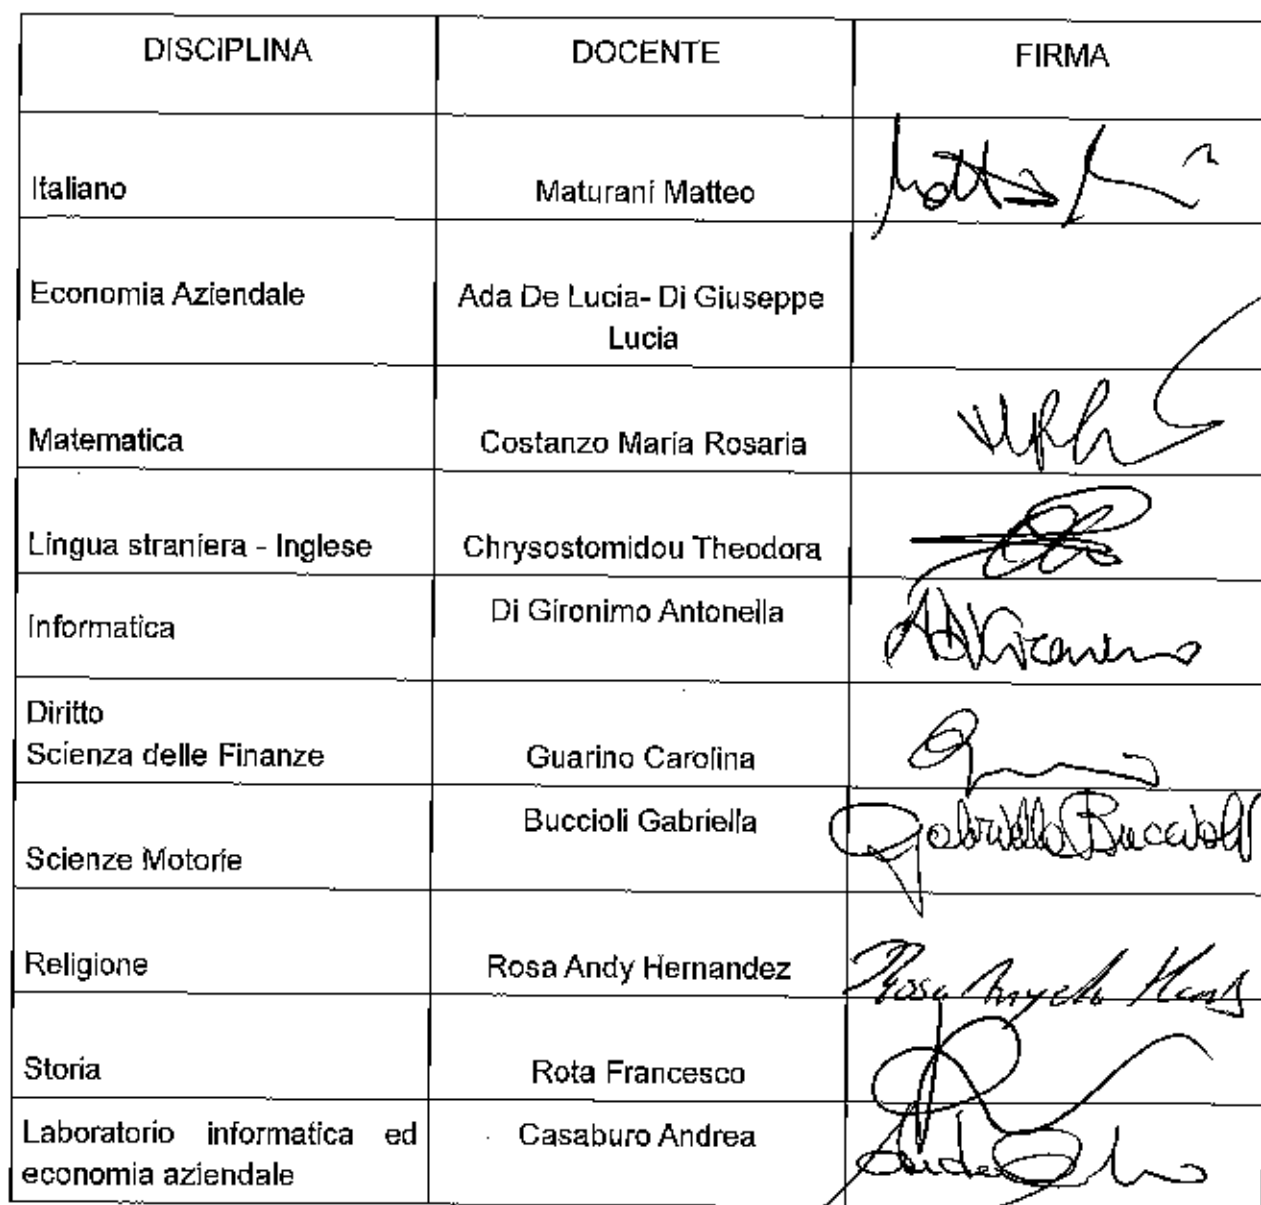 DISCIPLINA DOCENTE FIRMA
Italiano Maturani Matteo
Economia Aziendale Ada De Lucia- Di Giuseppe
Lucia
Matematica Costanzo Maria Rosaria
Lingua straniera - Inglese Chrysostomidou Theodora
Informatica Di Gironimo Antonella
Diritto
Scienza delle Finanze Guarino Carolina
Scienze Motorie Buccioli Gabriella Gabriella Buccioli
Religione Rosa Andy Hernandez
Storia Rota Francesco
Laboratorio informatica ed Casaburo Andrea
economia aziendale